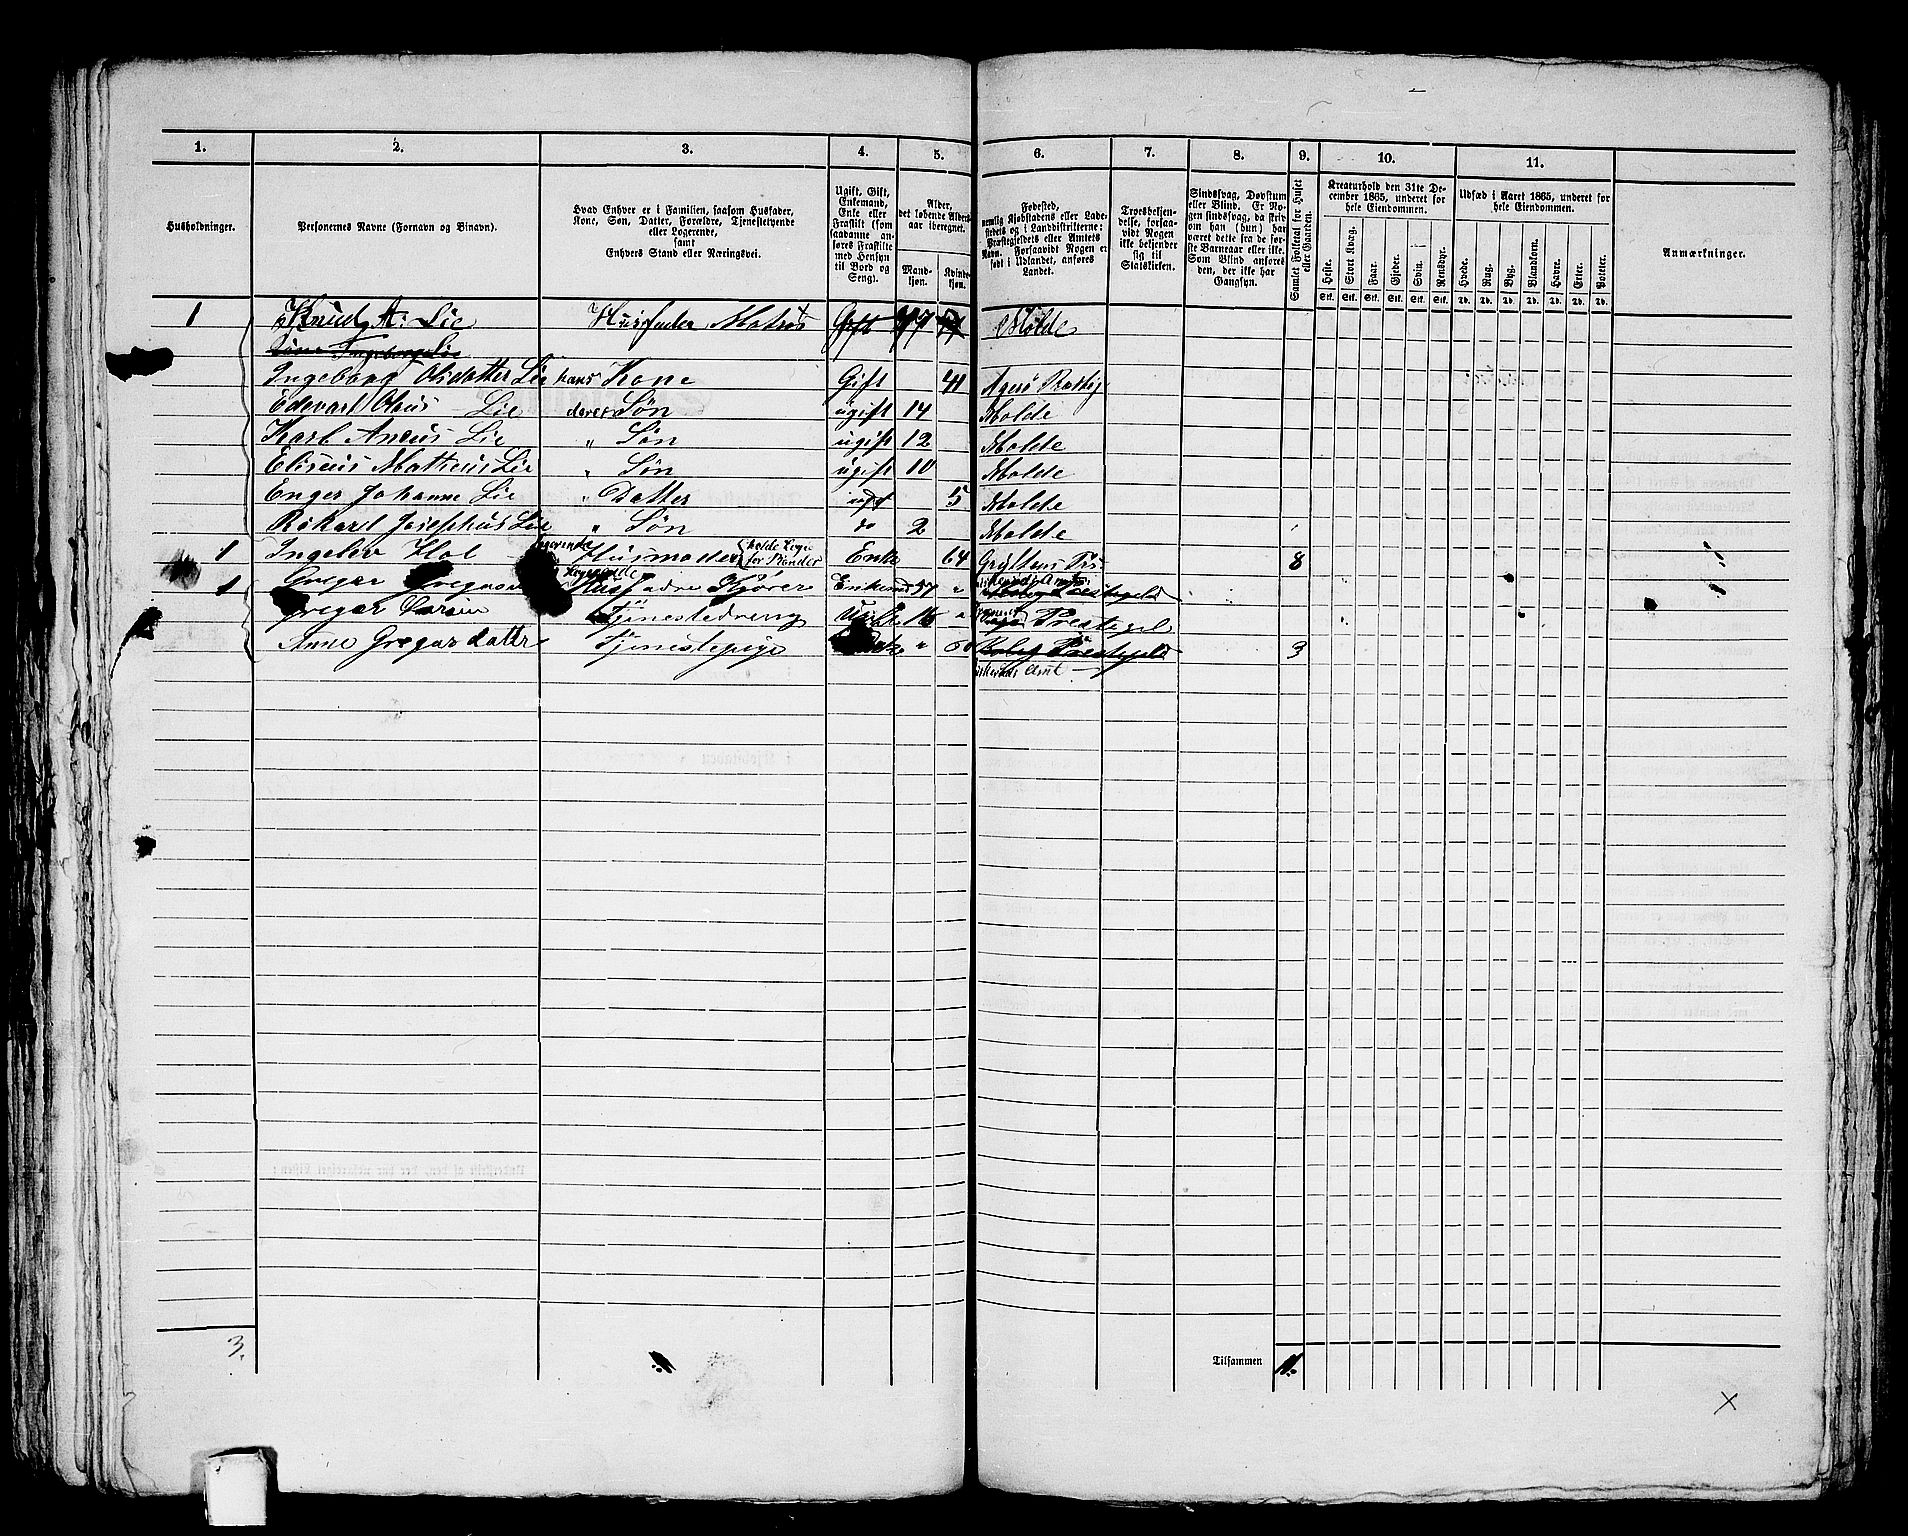 1. 2. 3. 4. 5. 6. 7. 8. 9. 10. 11.
Husholdninger.
Personernes Navne (Fornavn og Binavn).
Hvad Enhver er i Familien, saasom Husfader,
Kone, Søn, Datter, Forældre, Tjenestetyende
eller Logerende,
samt
Enhvers Stand eller Næringsvei.
Ugift, Gift,
Enkemand,
Enke eller
Fraskilt (som
saadanne an-
føres Fraskilte
med Hensyn
til Bord og
Seng).
Alder,
det løbende Alders-
aar iberegnet.
Mand-
kjøn.
Kvinde-
kjøn.
Fødested,
nemlig Kjøbstadens eller Lade-
stedets og i Landdistrikterne:
Præstegjeldets eller Amtets
Navn. Forsaavidt Nogen er
født i Udlandet, anføres
Landet.
Troesbekjen-
delse, forsaa-
vidt Nogen
ikke bekjender
sig til
Statskirken.
Sindssvag, Døvstum
eller Blind. Er No-
gen sindssvag, da skriv
om han (hun) har
været dette fra de før-
ste Barneaar eller ikke.
Som Blind anføres
den, der ikke har
Gangsyn.
Samlet Folketal for Huset
eller Gaarden.
Kreaturhold den 31te De-
cember 1865, underet for
hele Eiendommen.
Heste. Stort Kvæg. Faar. Gjeder. Svin. Rensdyr.
Stk. Stk. Stk. Stk. Stk. Stk.
Udsæd i Aaret 1865, underet for
hele Eiendommen.
Hvede. Rug. Byg. Blandkorn. Havre. Erter. Poteter.
Td. Td. Td. Td. Td. Td. Td.
Anmærkninger.
1 Knud A. Lie Husfader Matros Gift 47 Molde
Ingeborg Olsdatter Lie hans Kone Gift 41
Edevart Olaus Lie deres Søn ugift 14 Molde
Karl Aneus Lie " Søn ugift 12 Molde
Eliseus Matheus Lie " Søn ugift 10 Molde
Enger Johanne Lie " Datter ugft 5 Molde
Rikard Josephus Lie " Søn do 2 Molde
1 Ingelev Hol Logerende Husmoder Enke 64 8
1 Gregar Logerende Husfader Enkemd 57 "
Gregar Larsen Tjenestedreng Ugift 16 " Prestegel
Anne Gregarsdattr Tjenestepige " 3
Amt
3.
Tilsammen 11.
X